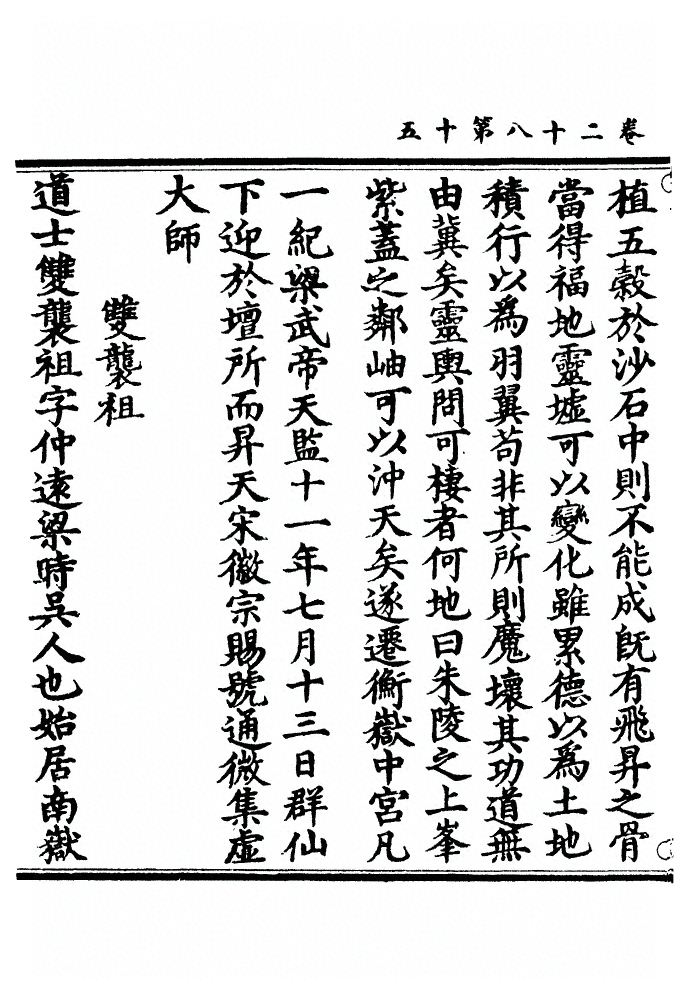 卷二十八第十五
植五穀於沙石中則不能成旣有飛昇之骨
當得福地靈墟可以變化雖累德以爲土地
積行以爲羽翼苟非其所則魔壞其功道無
由冀矣靈輿問可棲者何地曰朱陵之上峯
紫蓋之鄰岫可以沖天矣遂遷衡嶽中宮凡
一紀梁武帝天監十一年七月十三日群仙
下迎於壇所而昇天宋徽宗賜號通微集虛
大師
雙襲祖
道士雙襲祖字仲遠梁時吳人也始居南嶽